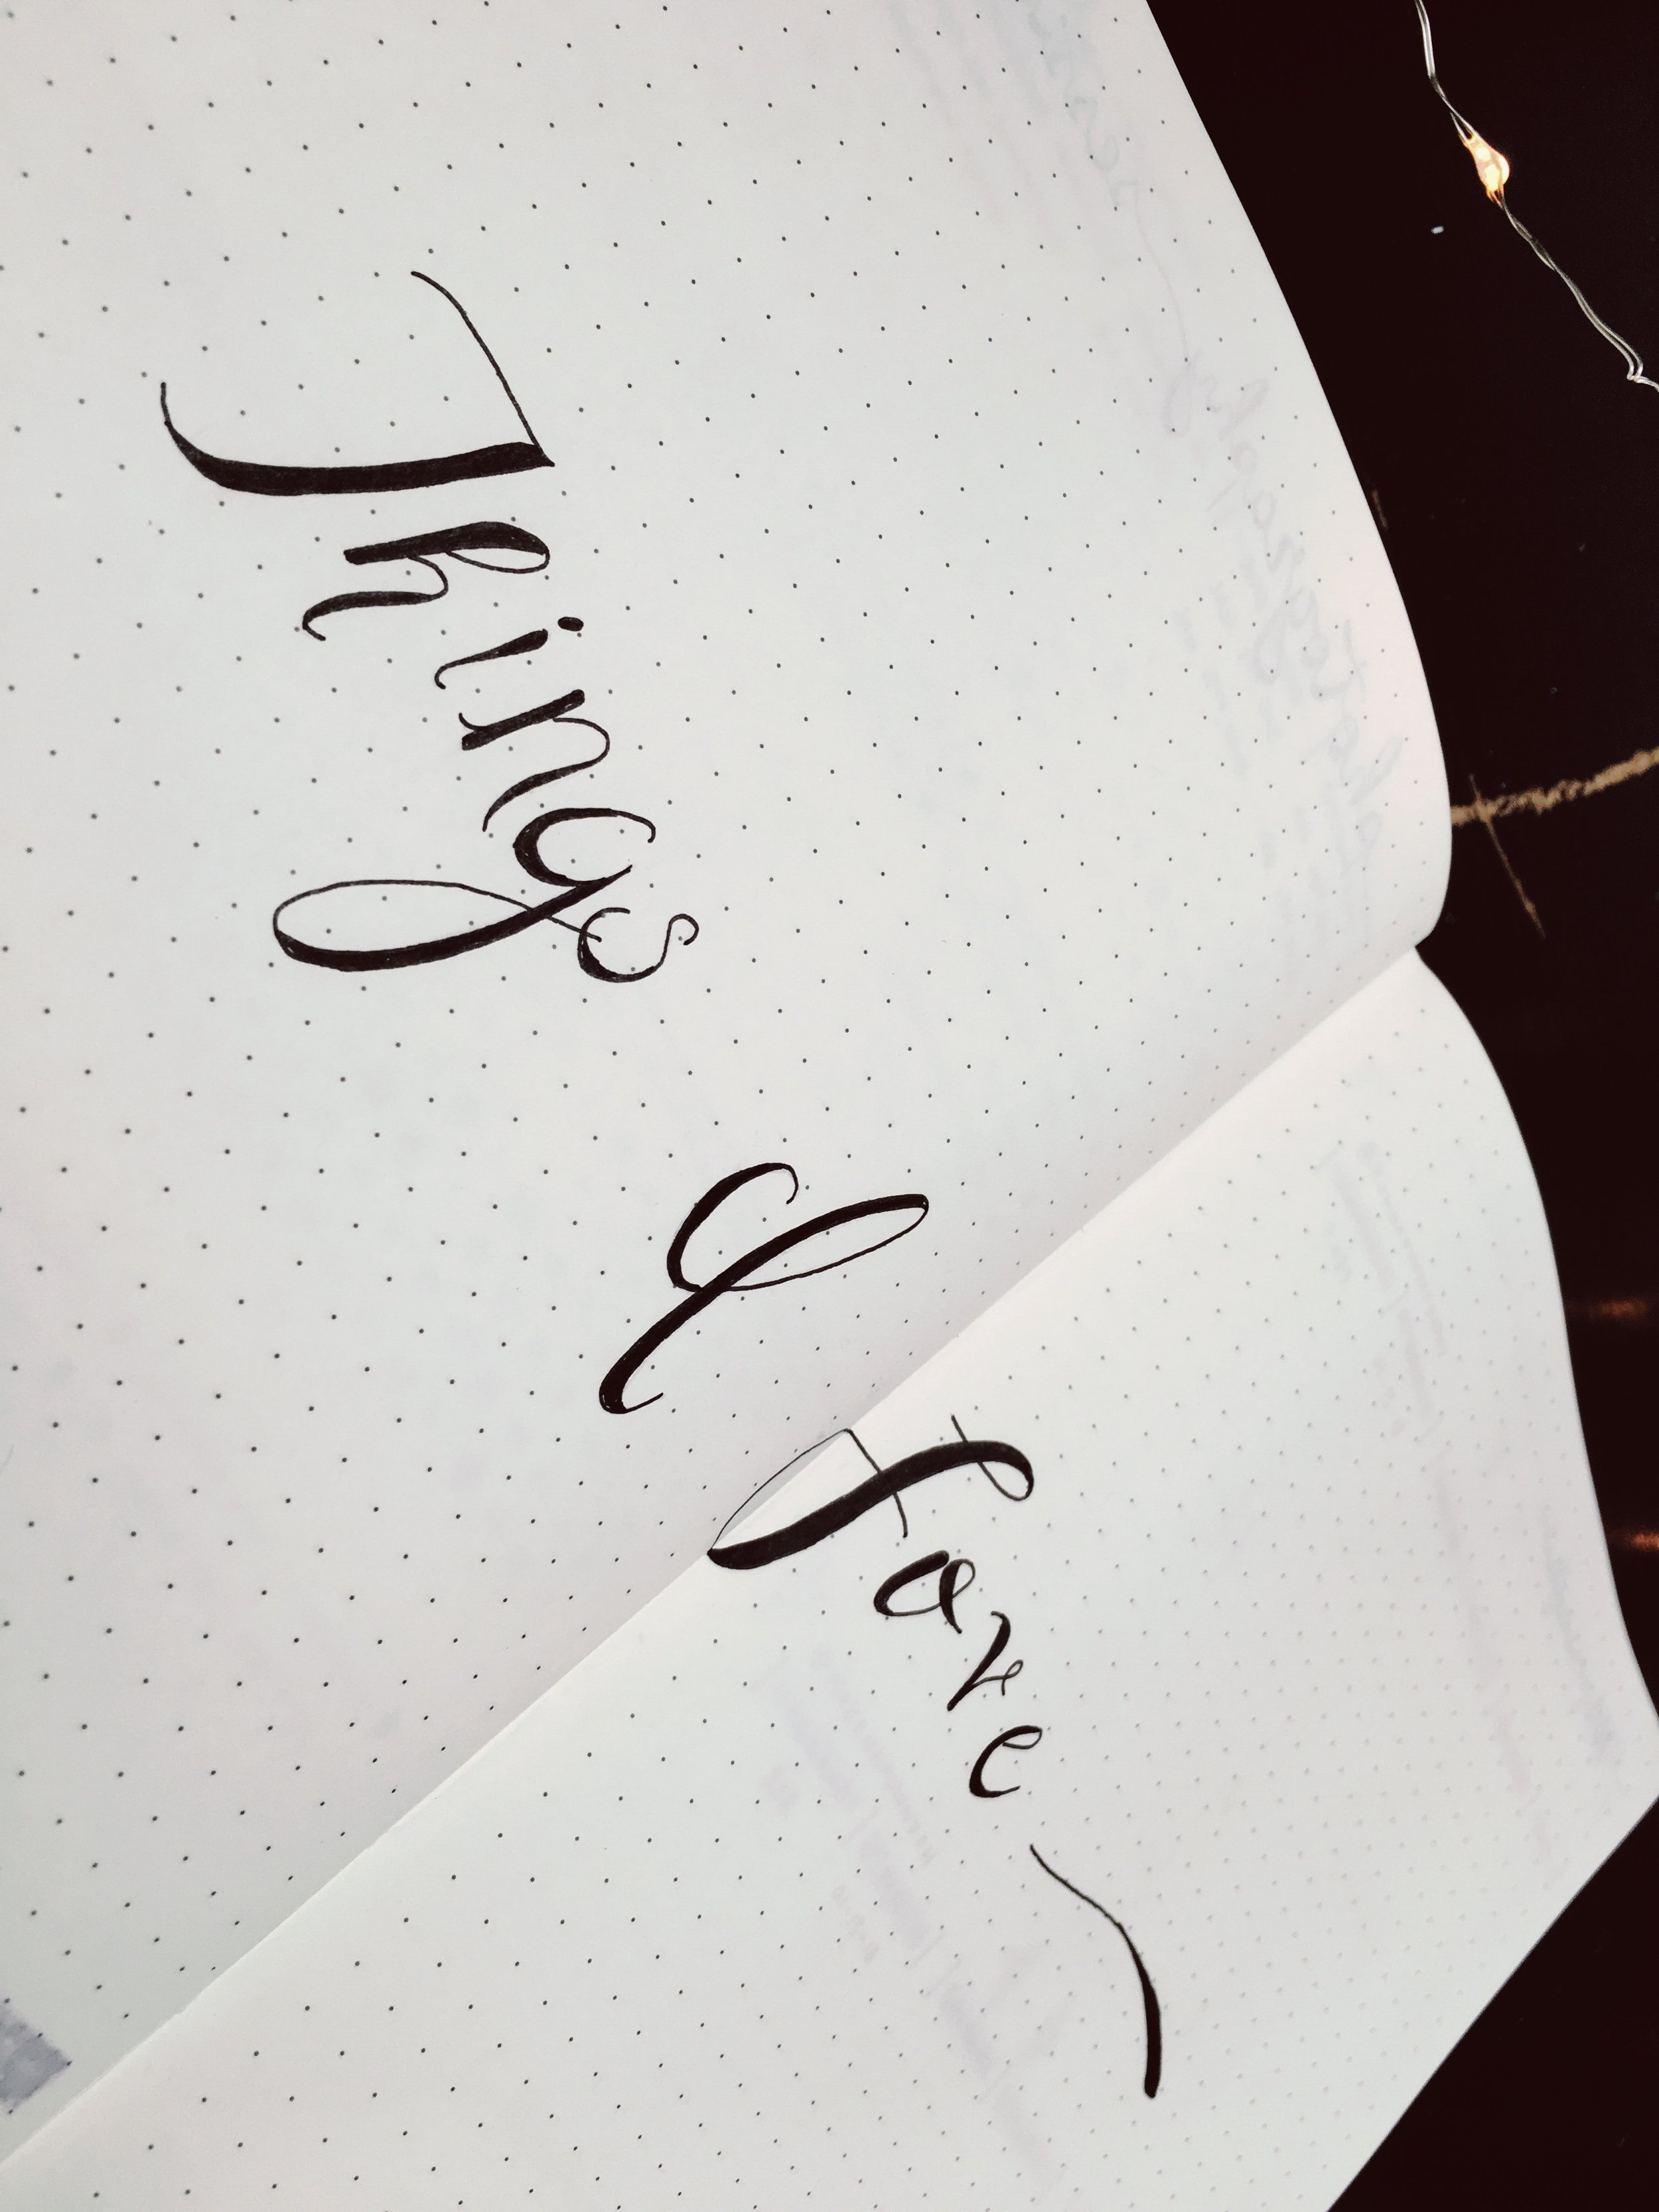 Things I Fave